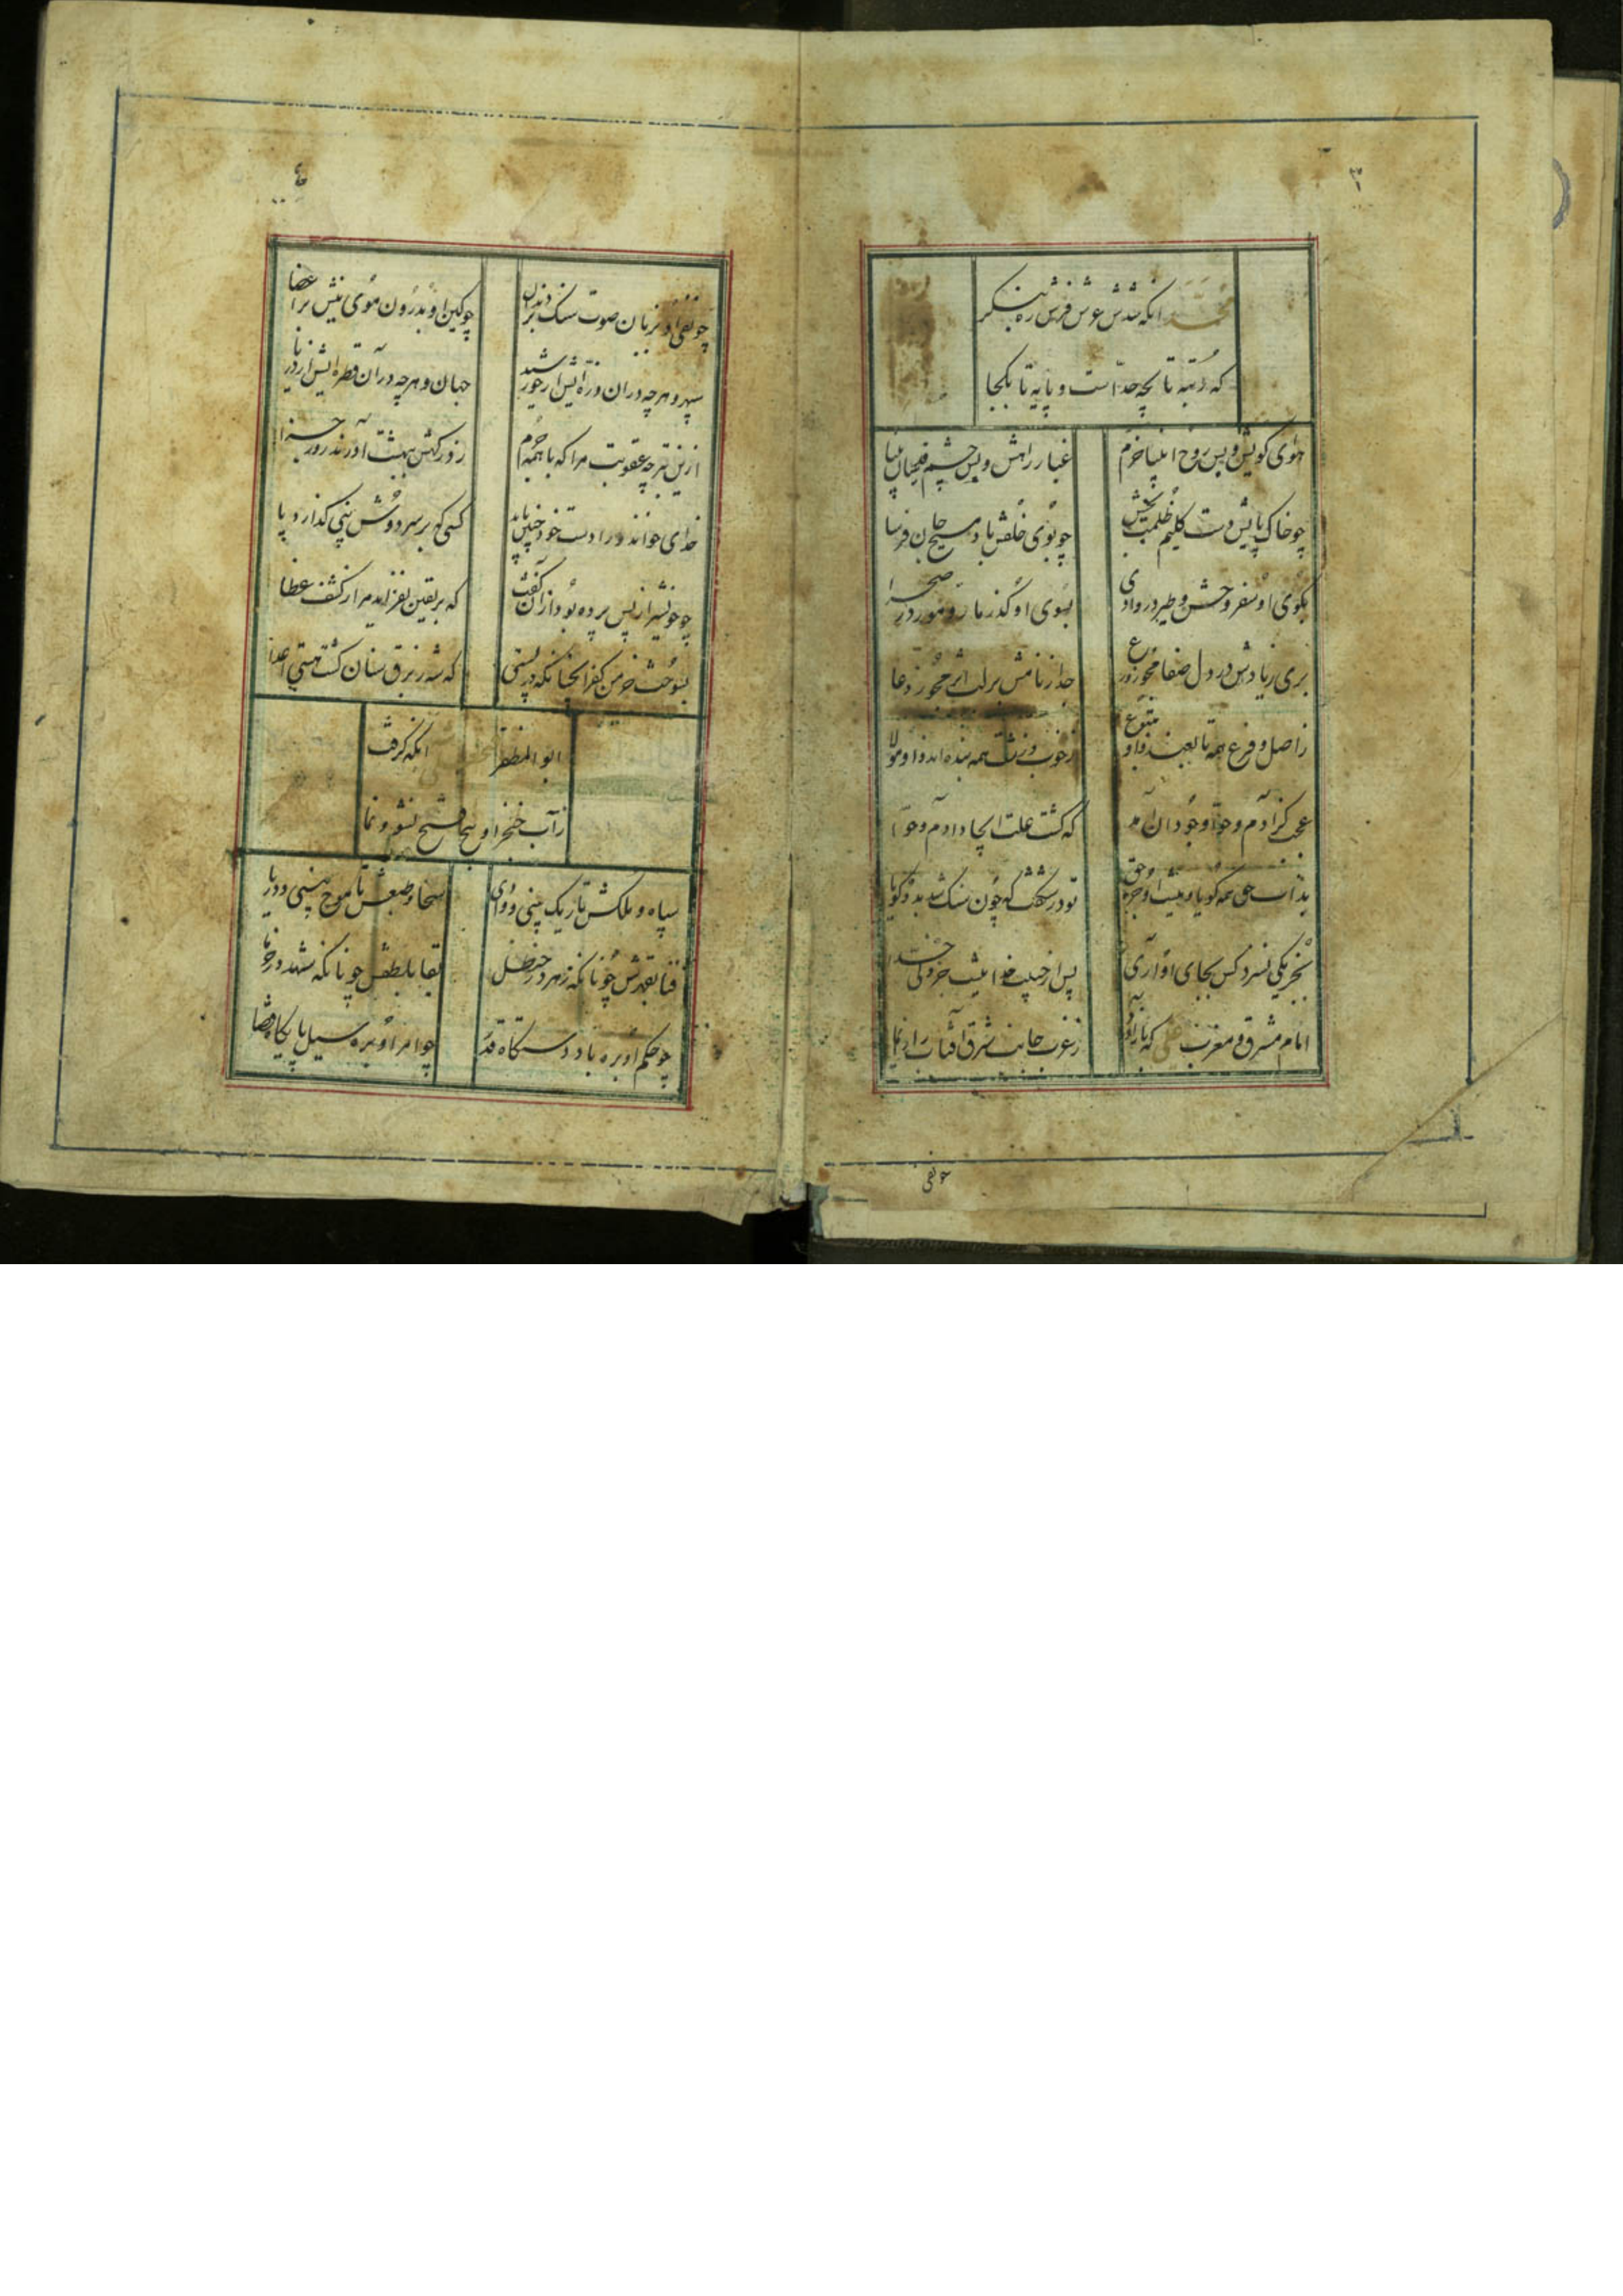 ۳
محمد انکه شدش عرش فرش ره بنکر
که رتبه تا بچه حد است و پایه تا بکجا
هوای کویش و پس روح انبیا خرم
غبار راهش و پس چشم قدسیان بینا
چو خاک پایش دست کلیم ظلمت بخش
چو بوی خلقش باد مسیح جان فرسا
بکوی او سفر وحش و طیر در وادی
بسوی او گذر مار و مور در صحرا
بری زیادش در دل صفا مجو زورع
جدا زنامش بر لب اثر مجو ز دعا
ز اصل و فرع همه تابعند و او متبوع
ز خوب و زشت همه بنده اند و او مولا
عجب کز آدم و حوا وجود آن آمد
که کشت علت ایجاد آدم و حوا
بذات حق همه کویا و نیست او جز حق
تو در شکفت که چون سنک شد بدو کویا
بجز یکی نسزد کس بجای او آری
پس از حبیب خدا نیست جز ولی خدا
امام مشرق و مغرب علی که
ز غرب جانب شرق آفتاب را
چونفی
۴
چو نفی او بزبان صوت سنک بر دندان
چو کین او بدرون موی نیش بر اعضا
سپهر و هر چه در آن ذره ایش از خورشید
جهان و هر چه در آن قطره ایش از دریا
ازین بتر چه عقوبت مرا که با همه جرم
ز دوزخش ببهشت آورند روز جزا
خدای خواند و را دست خود چنین باید
کسی که بر سر دوش نبی گذارد پا
چو خود نشیر از پس پرده بود از آن گفت
که بر یقین نفزاید مرا ز کشف غطا
بسوخت خرمن کفر انچنانکه در
که شه ز برق سنان کشت هستی اعدا
ابو المظفر انکه گرفت
ز آب خنجر او فتح نشو و نما
سپاه و ملکش تا ریک بینی و وادی
سخا و طبعش تا موج بینی و دریا
فنا بقهرش چونانکه زهر در حنظل
بقا بلطفش چونانکه شهد در خرما
چو حکم او بره باد دستگاه قدر
چو امر او بره سیل پایگاه قضا